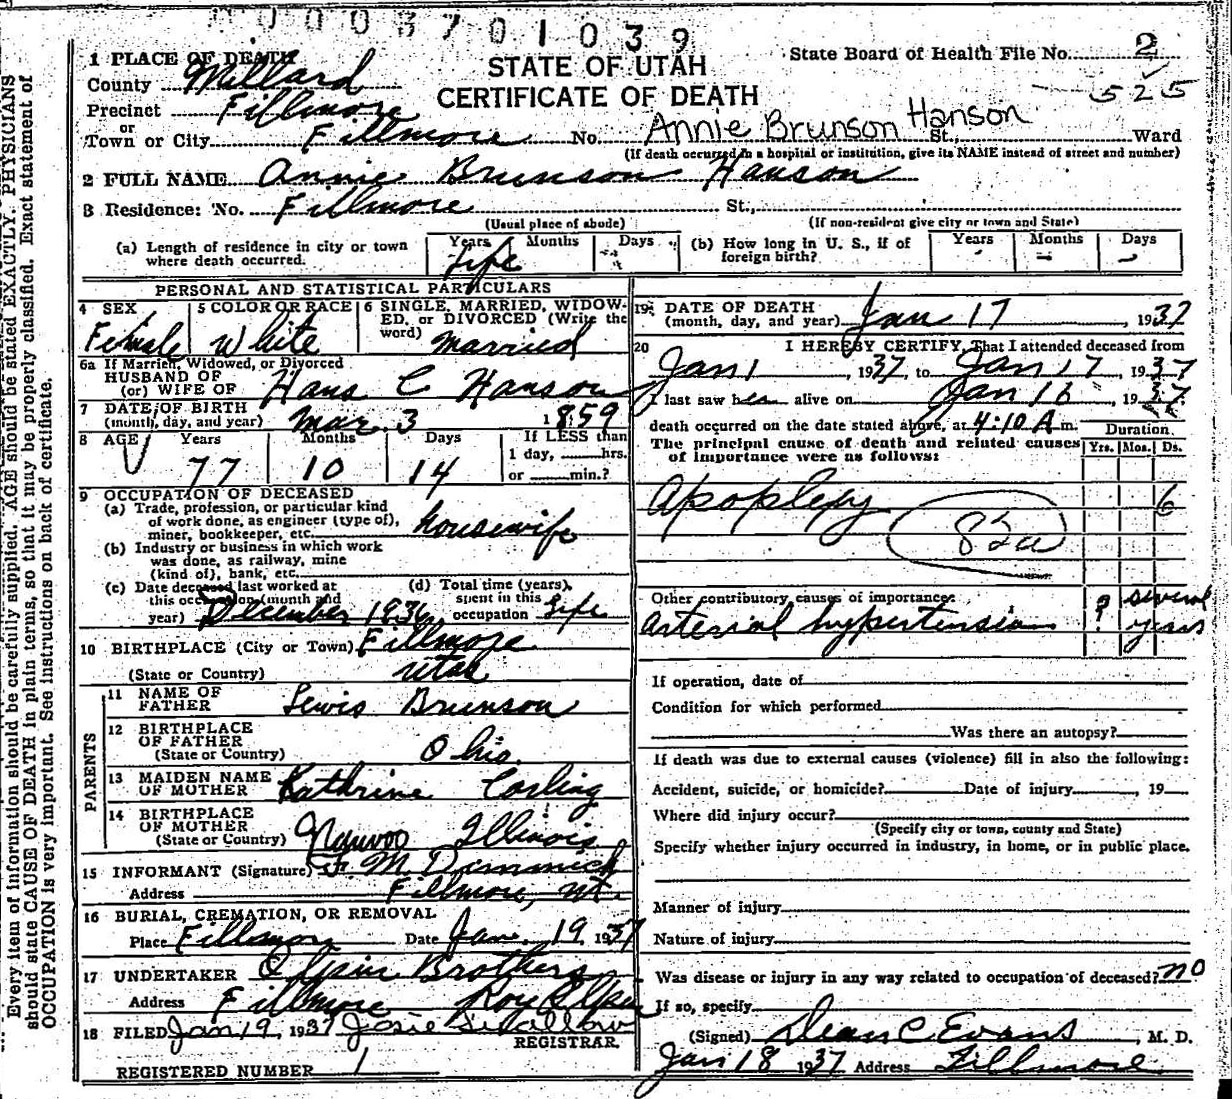 0 0 0 3 7 0 1 0 3 9
State Board of Health File No. 2
525
STATE OF UTAH
CERTIFICATE OF DEATH
1 PLACE OF DEATH
County Millard
Precinct Fillmore
or
Town or City Fillmore No. Annie Brunson Hanson St., Ward
(If death occurred in a hospital or institution, give its NAME instead of street and number)
2 FULL NAME Annie Brunson Hanson
3 Residence: No. Fillmore St.,
(Usual place of abode) (If non-resident give city or town and State)
(a) Length of residence in city or town where death occurred. Years Life Months Days
(b) How long in U. S., if of foreign birth? Years Months Days
PERSONAL AND STATISTICAL PARTICULARS
4 SEX Female
5 COLOR OR RACE White
6 SINGLE, MARRIED, WIDOWED, or DIVORCED (Write the word) Married
6a If Married, Widowed, or Divorced
HUSBAND OF
(or) WIFE OF Hans C Hanson
7 DATE OF BIRTH
(month, day, and year) Mar. 3 1859
8 AGE Years 77 Months 10 Days 14 If LESS than
1 day, hrs.
or min.?
9 OCCUPATION OF DECEASED
(a) Trade, profession, or particular kind
of work done, as engineer (type of),
miner, bookkeeper, etc. housewife
(b) Industry or business in which work
was done, as railway, mine
(kind of), bank, etc.
(c) Date deceased last worked at
this occupation (month and
year) December 1936
(d) Total time (years),
spent in this
occupation Life
10 BIRTHPLACE (City or Town) Fillmore
(State or Country) Utah
PARENTS
11 NAME OF
FATHER Lewis Brunson
12 BIRTHPLACE
OF FATHER
(State or Country) Ohio
13 MAIDEN NAME
OF MOTHER Kathrine Carling
14 BIRTHPLACE
OF MOTHER
(State or Country) Nauvoo Illinois
15 INFORMANT (Signature) F. M. Dimmick
Address Fillmore, Ut.
16 BURIAL, CREMATION, OR REMOVAL
Place Fillmore Date Jan. 19 1937
17 UNDERTAKER Olpin Brothers
Address Fillmore Roy Olpin
18 FILED Jan 19, 1937 Josie Swallow
REGISTRAR
REGISTERED NUMBER 1
19 DATE OF DEATH
(month, day, and year) Jan 17, 1937
20 I HEREBY CERTIFY, That I attended deceased from
Jan 1, 1937, to Jan 17, 1937
I last saw her alive on Jan 16, 1937
death occurred on the date stated above, at 4:10 A m. Duration
The principal cause of death and related causes
of importance were as follows: Yrs. Mos. Ds.
Apoplexy 6
82a
Other contributory causes of importance: ? several
Arterial hypertension years
If operation, date of
Condition for which performed
Was there an autopsy?
If death was due to external causes (violence) fill in also the following:
Accident, suicide, or homicide? Date of injury , 19
Where did injury occur?
(Specify city or town, county and State)
Specify whether injury occurred in industry, in home, or in public place.
Manner of injury
Nature of injury
Was disease or injury in any way related to occupation of deceased? no
If so, specify
(Signed) Dean C Evans, M. D.
Jan 18 1937 Address Fillmore
Every item of information should be carefully supplied. AGE should be stated EXACTLY. PHYSICIANS
should state CAUSE OF DEATH in plain terms, so that it may be properly classified. Exact statement of
OCCUPATION is very important. See instructions on back of certificate.